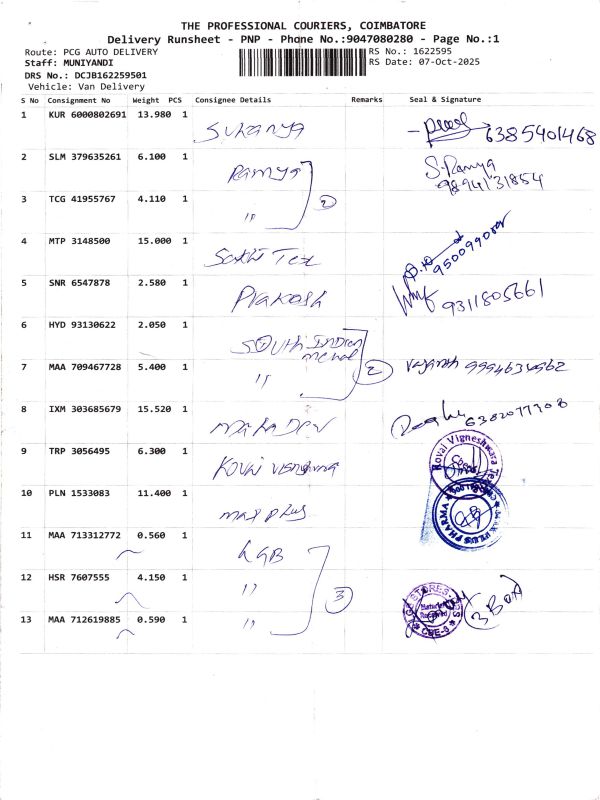 THE PROFESSIONAL COURIERS, COIMBATORE
Delivery Runsheet - PNP - Phone No.:9047080280 - Page No.:1
Route: PCG AUTO DELIVERY RS No.: 1622595
Staff: MUNIYANDI RS Date: 07-Oct-2025
DRS No.: DCJB162259501
Vehicle: Van Delivery
S No Consignment No Weight PCS Consignee Details Remarks Seal & Signature
1 KUR 6000802691 13.980 1 Sukanya 6385401468
2 SLM 379635261 6.100 1 Ramya S. Ramya
9894131854
3 TCG 41955767 4.110 1 " 2
4 MTP 3148500 15.000 1 Sakthi Tex
5 SNR 6547878 2.580 1 Prakash 9311805661
6 HYD 93130622 2.050 1 South Indian
7 MAA 709467728 5.400 1 " 2
8 IXM 303685679 15.520 1 Maha Dev
9 TRP 3056495 6.300 1 Kovai Kovai Vigneshwara Tex
10 PLN 1533083 11.400 1 max plus PLUS PHARMA
11 MAA 713312772 0.560 1 LGB
12 HSR 7607555 4.150 1 " 3 STORES
13 MAA 712619885 0.590 1 " CBE-6 3 Box